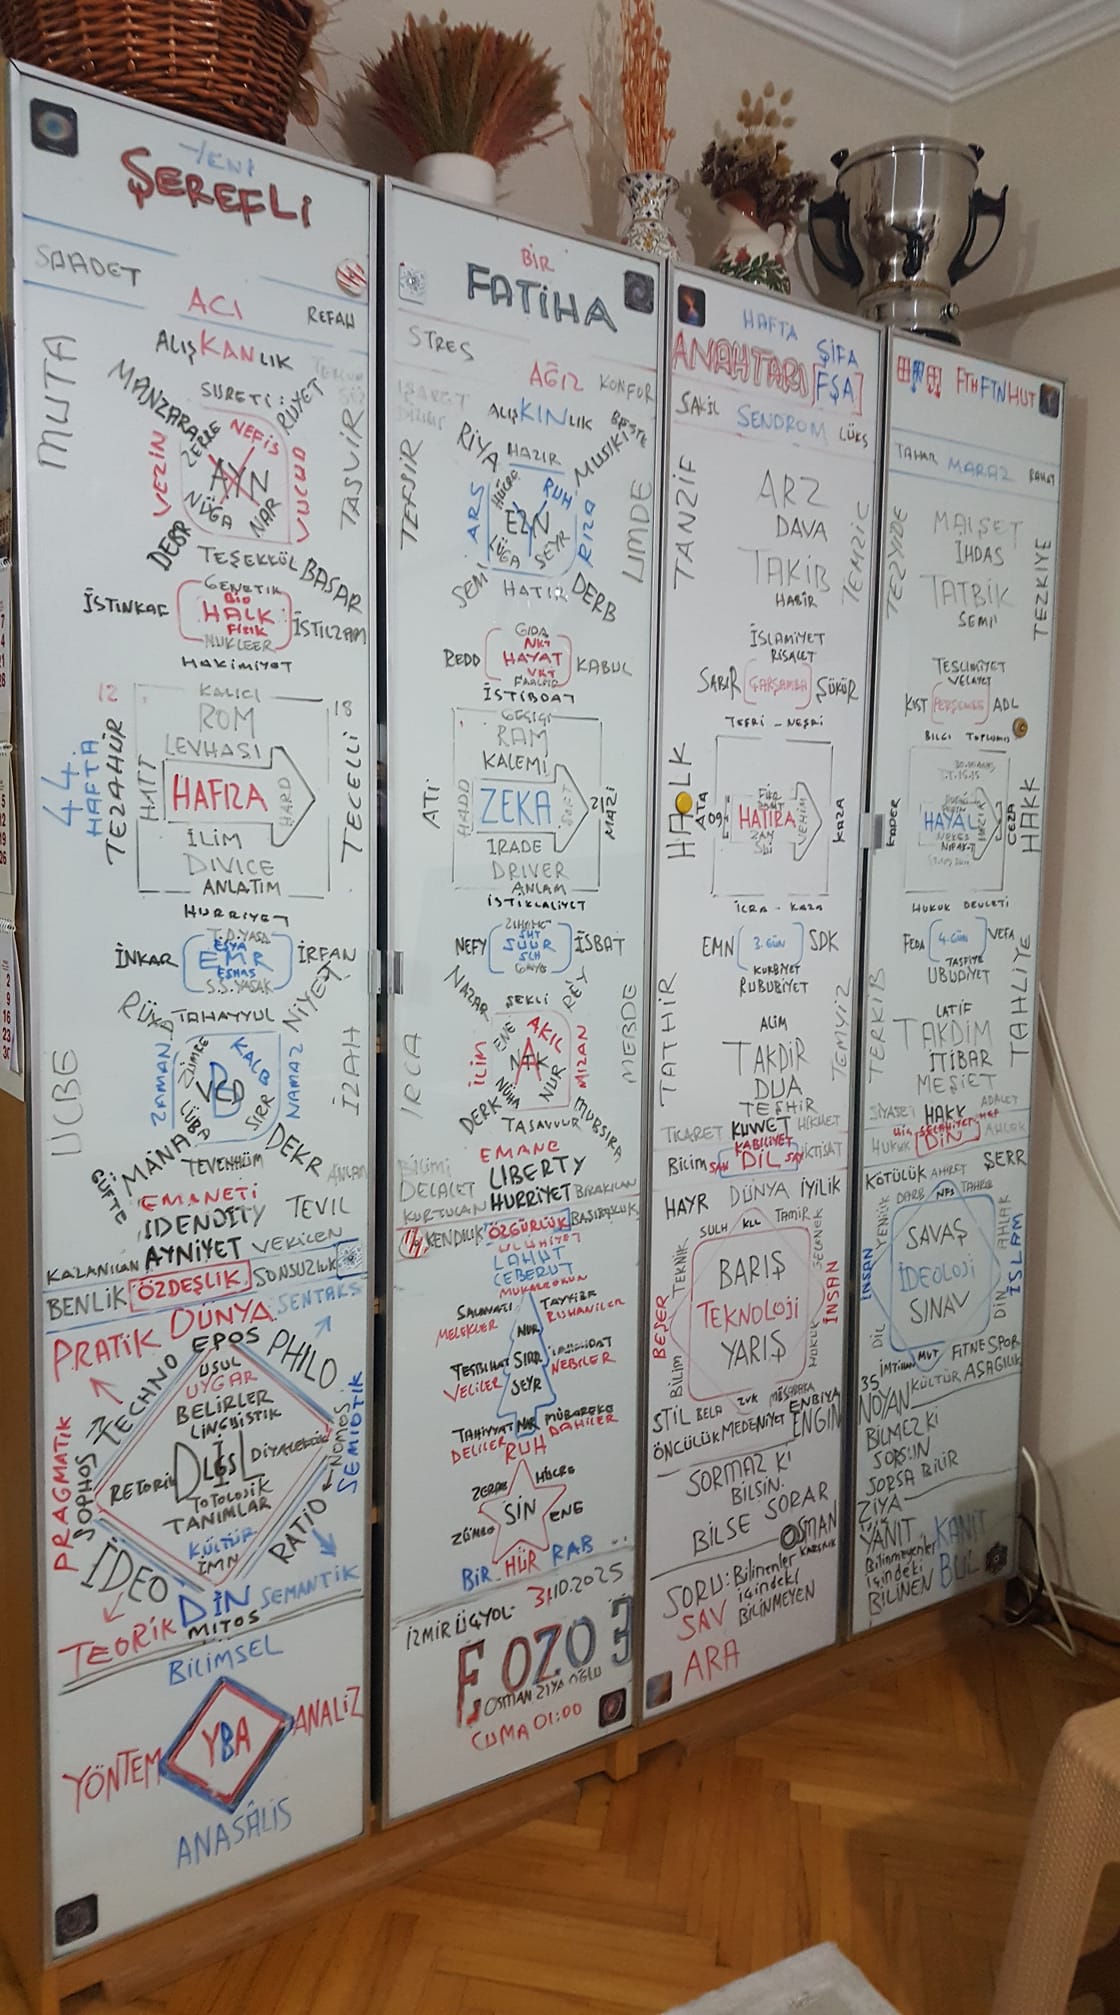 YENİ
ŞEREFLİ
SAADET
ACI
REFAH
ALIŞKANLIK
MUTA
MANZARA
SURETİ
RÜYET
TASVİR
VEZİN
ZERRE
NEFİS
VUCUD
AYN
NÜGA
NAR
DEBR
TEŞEKKÜL
BASAR
GENETİK
İSTİNKAF
BİO
HALK
FİZİK
İSTİLZAM
NUKLEER
HAKİMİYET
12
KALICI
18
ROM
LEVHASI
44.
HAFTA
TEZAHÜR
HATT
HAFIZA
HARD
TECELLİ
İLİM
DIVICE
ANLATIM
HURRİYET
T.D.YASA
İNKAR
EŞYA
EMR
EŞHAS
İRFAN
S.S.YASAK
TAHAYYUL
NİYET
ZAMAN
ZÜMRE
KALB
NAMAZ
VCD
LÜBA
SIRR
UCBE
İZAH
GÜFTE
MANA
TEVEHHÜM
DEKR
EMANETİ
IDENDITY
TEVİL
KAZANILAN
AYNİYET
VERİLEN
BENLİK
ÖZDEŞLİK
SONSUZLUK
PRATİK
DÜNYA
SENTAKS
TECHNO
EPOS
PHILO
USUL
UYGAR
BELİRLER
LİNGUİSTİK
PRAGMATİK
SOPHOS
RETORİK
DİYALEKTİK
NOMOS
SEMİOTİK
TOTOLOJİK
TANIMLAR
KÜLTÜR
İMN
İDEO
RATİO
DİN
SEMANTİK
TEORİK
MİTOS
BİLİMSEL
YÖNTEM
YBA
ANALİZ
ANASÂLİS
BİR
FATİHA
STRES
AĞIZ
KONFOR
İŞARET
ALIŞKINLIK
BESTE
TEFSİR
RİYA
HAZIR
MUSİKİ
UMDE
ARS
HÜCRE
RUH
RIZA
EZN
LÜGA
SEYR
SEMİ
HATIR
DERB
GIDA
REDD
HAYAT
KABUL
İSTİBDAT
GEÇİCİ
RAM
KALEMİ
ATİ
HADD
ZEKA
SOFT
21
MAZİ
İRADE
DRIVER
ANLAM
İSTİKLALİYET
NEFY
ŞUUR
İSBAT
NAZAR
ŞEKLİ
REY
İLİM
ENE
AKIL
MİZAN
NÜHA
NUR
İRCA
MEBDE
DERK
TASAVVUR
MUBSIRA
EMANE
BİLİMİ
LIBERTY
DELALET
KURTULAN
HURRİYET
BIRAKILAN
KENDİLİK
ÖZGÜRLÜK
BAŞIBOŞLUK
ULUHİYET
LAHUT
CEBERUT
MUKARREBUN
SALAVATI
TAYYİBE
MELEKLER
NUR
RUHANİLER
TESBİHAT
SIRR
VELİLER
NEBİLER
SEYR
TAHİYYAT
NAR
MÜBAREKE
DELİLER
DAHİLER
RUH
ZERRE
HÜCRE
SİN
ENE
BİR
HÜR
RAB
İZMİR ÜÇYOL
31.10.2025
E OZO 3
OSMAN ZİYA OĞLU
CUMA 01:00
HAFTA
ŞİFA
ANAHTARI
[FŞA]
SAKİL
SENDROM
LÜKS
TANZİF
ARZ
DAVA
TAKİB
HABİR
TEMZİC
İSLAMİYET
RİSALET
SABIR
ÇARŞAMBA
ŞÜKÜR
TEŞRİ - NEŞRİ
HALK
ATA
09
HATIRA
VEHİM
KAZA
İCRA - KAZA
EMN
3. GÜN
SDK
KURBİYET
RUBUBİYET
TATHİR
ALİM
TAKDİR
DUA
TEŞHİR
TEMYİZ
TİCARET
KUVVET
HİKMET
KABİLİYET
Bilim
SAN
DİL
SAY
İKTİSAT
HAYR
DÜNYA
İYİLİK
SULH
KLL
TAMİR
TEKNİK
BARIŞ
TEKNOLOJİ
YARIŞ
BEŞER
BİLİM
HUKUK
İNSAN
STİL
BELA
ZVK
MÜSABAKA
ENBİYA
ÖNCÜLÜK
MEDENİYET
ENGİN
SORMAZ Kİ
BİLSİN
BİLSE SORAR
OSMAN
SORU:
Bilinenler
içindeki
BİLİNMEYEN
SAV
ARA
FTHFTNHUT
TAHAR
MARAZ
RAHAT
TEZYİDE
MAİŞET
İHDAS
TATBİK
SEMİ
TEZKİYE
TESLİMİYET
VELAYET
KIST
PERŞEMBE
ADL
BİLGİ TOPLUMU
KADER
HAYAL
CEZA
HAKK
HUKUK DEVLETİ
FEDA
4. GÜN
VEFA
TASFİYE
UBUDİYET
TERKİB
LATİF
TAKDİM
İTİBAR
MEŞİET
TAHLİYE
SİYASET
HAKK
ADALET
HUKUK
DİN
AHLAK
KÖTÜLÜK
AHİRET
ŞERR
DARB
NFS
TAHRİB
SAVAŞ
İDEOLOJİ
SINAV
İNSAN
AHLAK
DİL
DİN
İSLAM
35
İMTİHAN
MVT
FİTNE
SPOR
NOYAN
KÜLTÜR
AŞAĞILIK
BİLMEZ Kİ
SORSUN
SORSA BİLİR
ZİYA
YANIT
KANIT
Bilinmeyenler
içindeki
BİLİNEN
BUL